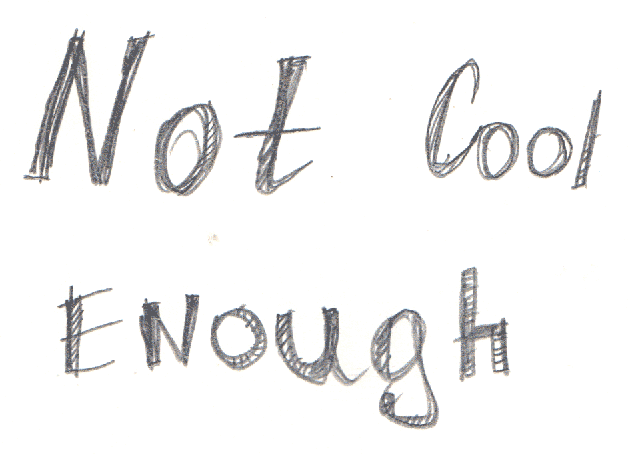 Not Cool
Enough